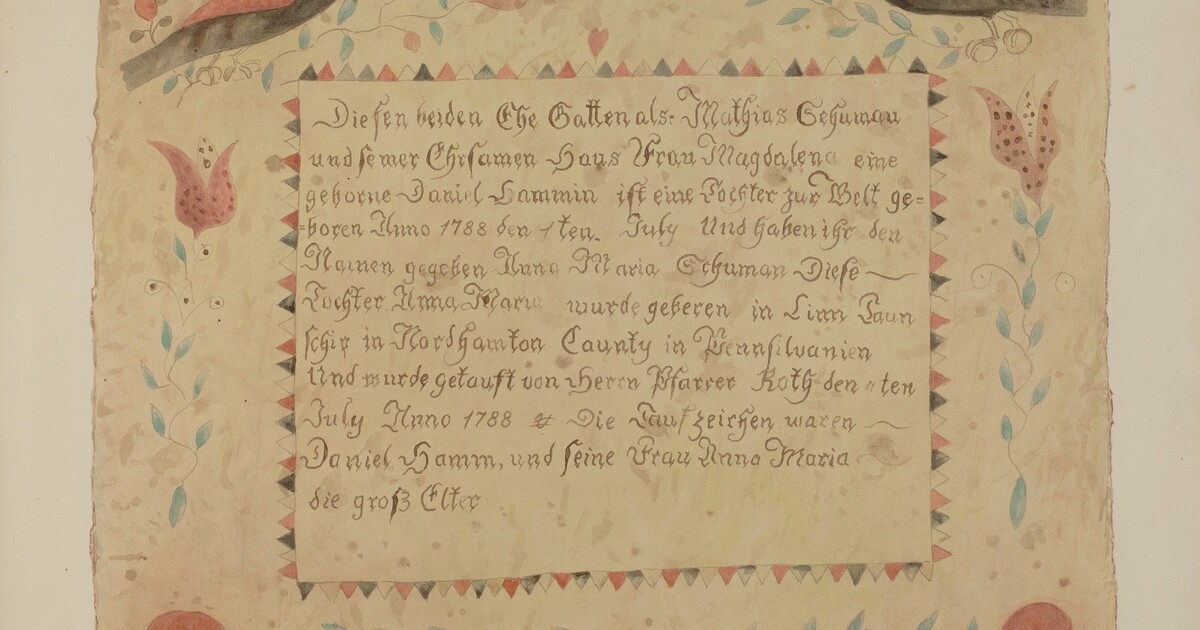 Diesen beiden Ehe Gatten als: Mathias Schuman
und seiner Ehrsamen Haus Frau Magdalena eine
geborne Daniel Hammin ist eine Tochter zur Welt ge=
=boren Anno 1788 den 1ten. July Und haben ihr den
Namen gegeben Anna Maria Schuman Diese
Tochter Anna Maria wurde geberen in Linn Taun
schip in Nordhamton County in Pennsilvanien
Und wurde getauft von Herrn Pfarrer Roth den "ten
July Anno 1788 Die Taufzeichen waren
Daniel Hamm, und seine Frau Anna Maria
die groß Elter